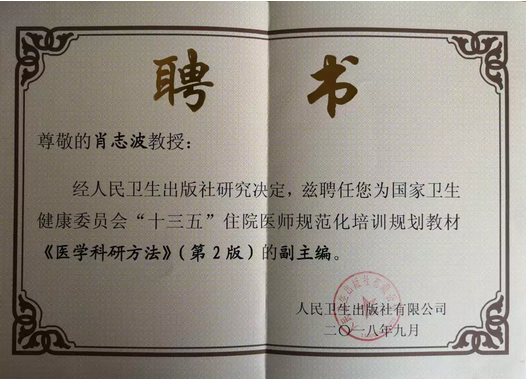 聘 书
尊敬的肖志波教授：
经人民卫生出版社研究决定，兹聘任您为国家卫生
健康委员会“十三五”住院医师规范化培训规划教材
《医学科研方法》（第2版）的副主编。
人民卫生出版社有限公司
二〇一八年九月